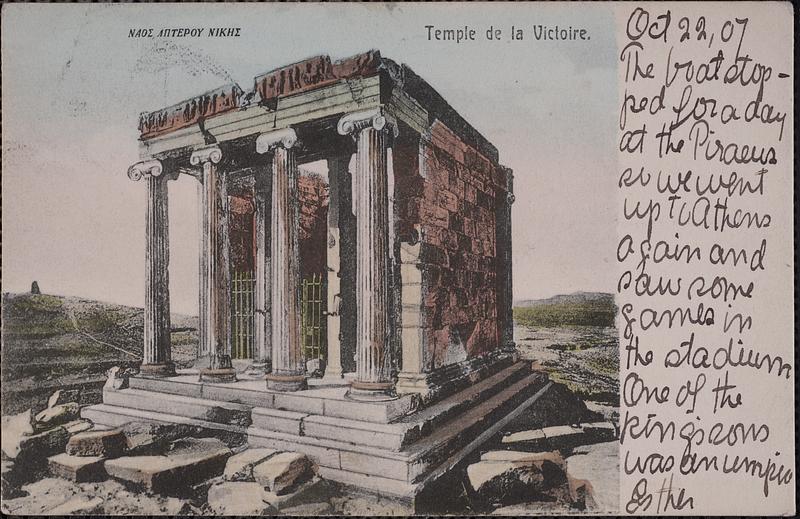 ΝΑΟΣ ΑΠΤΕΡΟΥ ΝΙΚΗΣ
Temple de la Victoire.
Oct 22, 07
The boat stop-
ped for a day
at the Piraeus
so we went
up to Athens
again and
saw some
games in
the stadium
One of the
kings sons
was an umpire
Esther